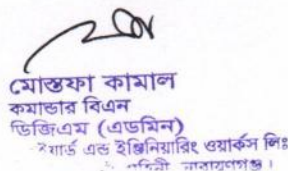 মোস্তফা কামাল
কমান্ডার বিএন
ডিজিএম (এডমিন)
য়ার্ড এন্ড ইঞ্জিনিয়ারিং ওয়ার্কস লিঃ
নারায়ণগঞ্জ।